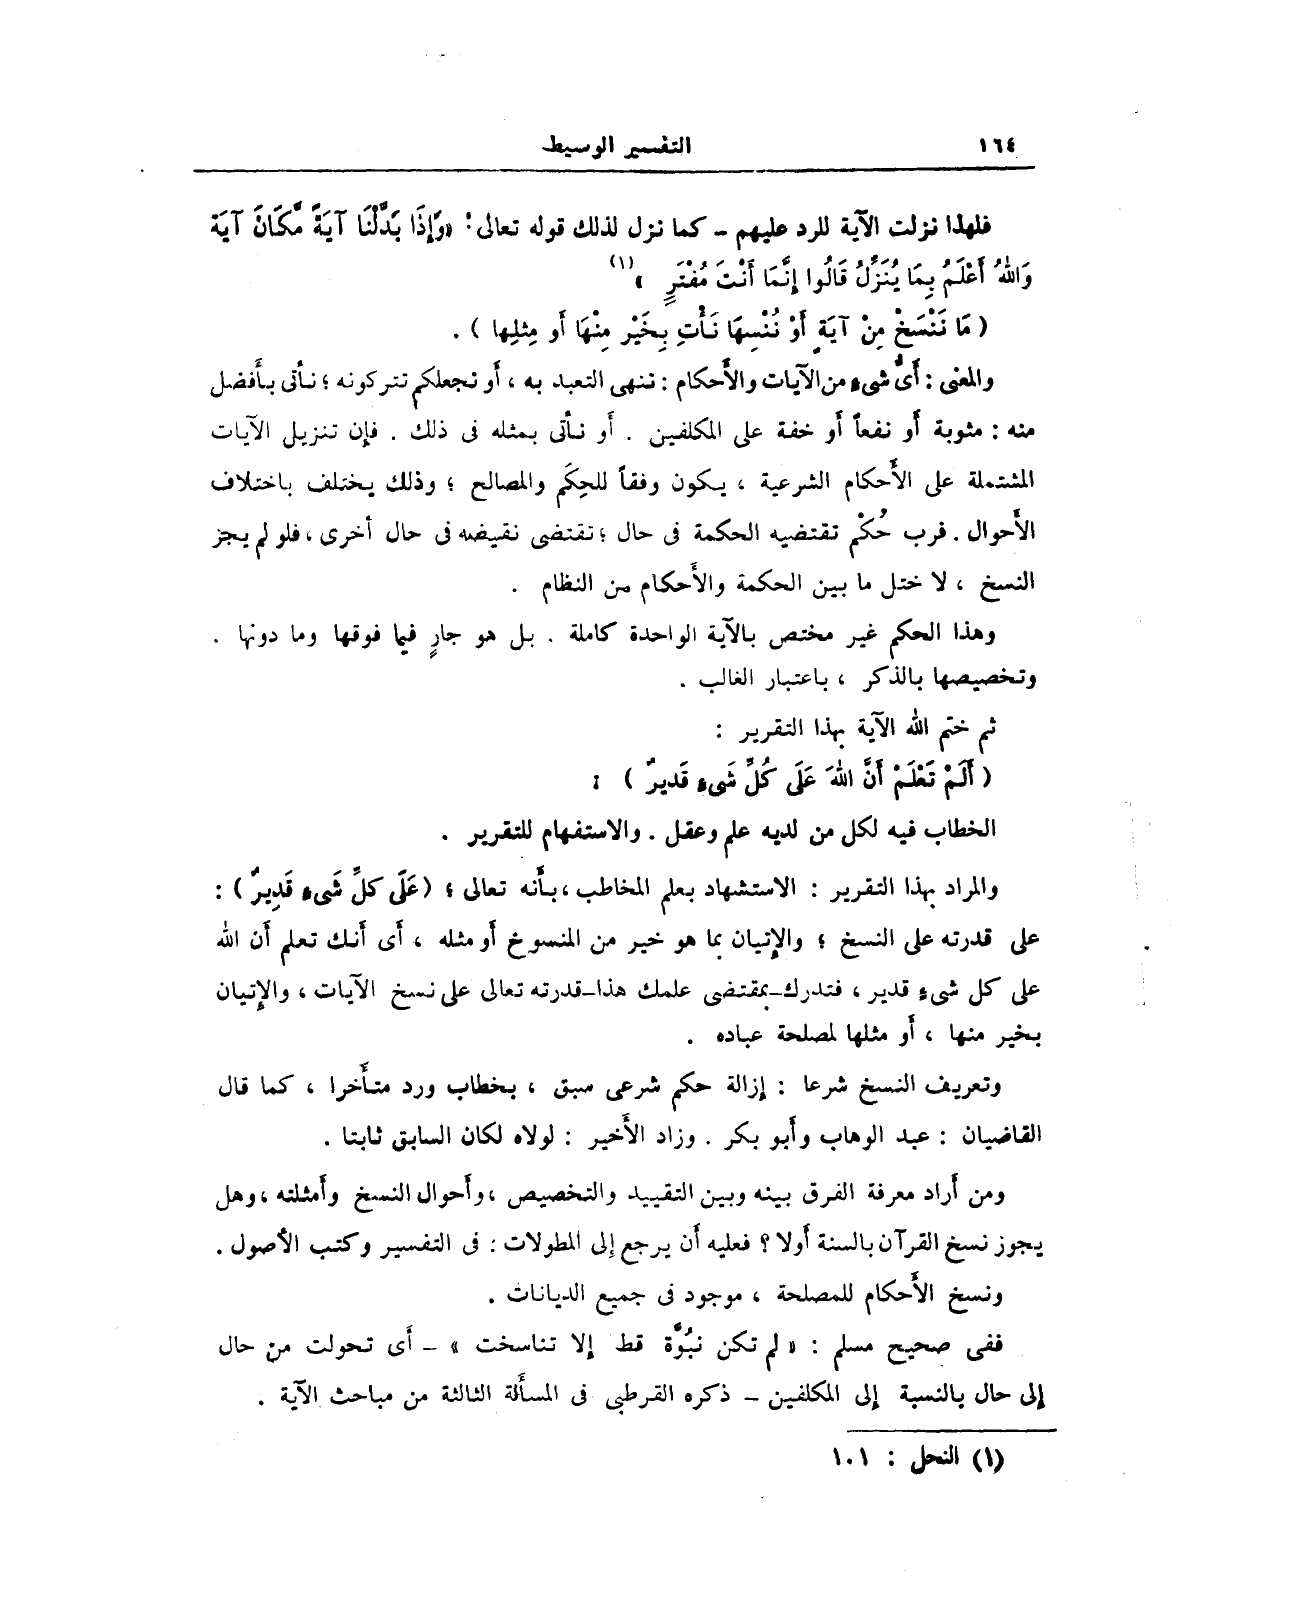 ١٦٤ التفسير الوسيط
فلهذا نزلت الآية للرد عليهم – كما نزل لذلك قوله تعالى: «وَإِذَا بَدَّلْنَا آيَةً مَّكَانَ آيَة
وَاللهُ أَعْلَمُ بِمَا يُنَزِّلُ قَالُوا إِنَّمَا أَنْتَ مُفْتَرٍ » (١)
( مَا نَنْسَخْ مِنْ آيَةٍ أَوْ نُنْسِهَا نَأْتِ بِخَيْرٍ مِنْهَا أو مِثلِها ) .
والمعنى : أَىُّ شىءٍ من الآيات والأَحكام : ننهى التعبد به ، أَو نجعلكم تتركونه ؛ نأتى بأَفضل
منه : مثوبة أَو نفعاً أَو خفة على المكلفين . أَو نأتى بمثله فى ذلك . فإن تنزيل الآيات
المشتملة على الأَحكام الشرعية ، يكون وفقاً للحِكَم والمصالح ؛ وذلك يختلف باختلاف
الأَحوال . فرب حُكْم تقتضيه الحكمة فى حال ؛ تقتضى نقيضه فى حال أخرى ، فلو لم يجز
النسخ ، لا ختل ما بين الحكمة والأَحكام من النظام .
وهذا الحكم غير مختص بالآية الواحدة كاملة . بل هو جارٍ فيما فوقها وما دونها .
وتخصيصها بالذكر ، باعتبار الغالب .
ثم ختم الله الآية بهذا التقرير :
( أَلَمْ تَعْلَمْ أَنَّ اللهَ عَلَى كُلِّ شَىءٍ قَديرٌ ) :
الخطاب فيه لكل من لديه علم وعقل . والاستفهام للتقرير .
والمراد بهذا التقرير : الاستشهاد بعلم المخاطب ، بأَنه تعالى ؛ (عَلَى كلِّ شَىءٍ قَدِيرٌ ) :
على قدرته على النسخ ؛ والإتيان بما هو خير من المنسوخ أَو مثله ، أَى أَنك تعلم أَن الله
على كل شىءٍ قدير ، فتدرك–بمقتضى علمك هذا–قدرته تعالى على نسخ الآيات ، والإِتيان
بخير منها ، أَو مثلها لمصلحة عباده .
وتعريف النسخ شرعا : إزالة حكم شرعى سبق ، بخطاب ورد متأَخرا ، كما قال
القاضيان : عبد الوهاب وأَبو بكر . وزاد الأَخير : لولاه لكان السابق ثابتا .
ومن أَراد معرفة الفرق بينه وبين التقييد والتخصيص ، وأَحوال النسخ وأَمثلته ، وهل
يجوز نسخ القرآن بالسنة أَولا ؟ فعليه أَن يرجع إلى المطولات : فى التفسير وكتب الأصول .
ونسخ الأَحكام للمصلحة ، موجود فى جميع الديانات .
ففى صحيح مسلم : « لم تكن نبُوَّة قط إلا تناسخت » – أَى تحولت من حال
إلى حال بالنسبة إلى المكلفين – ذكره القرطبى فى المسأَلة الثالثة من مباحث الآية .
(١) النحل : ١٠١